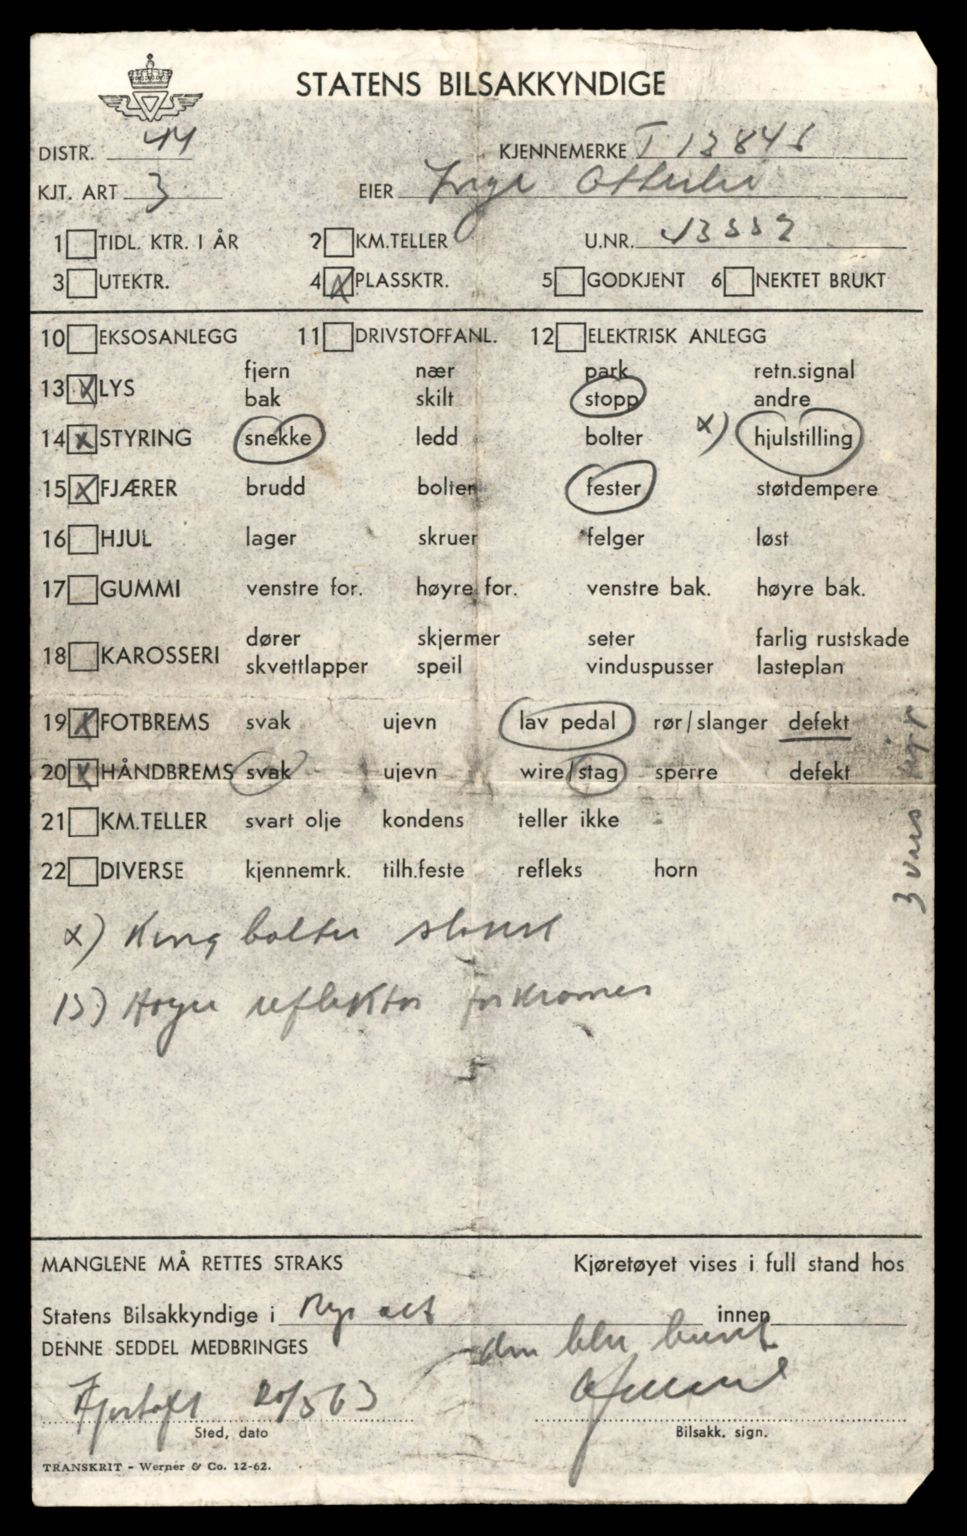 STATENS BILSAKKYNDIGE
DISTR. 44
KJENNEMERKE T 13845
KJT. ART 3
EIER Inge Otterlei
1 TIDL. KTR. I ÅR 2 KM.TELLER U.NR. 13559
3 UTEKTR. 4 X PLASSKTR. 5 GODKJENT 6 NEKTET BRUKT
10 EKSOSANLEGG 11 DRIVSTOFFANL. 12 ELEKTRISK ANLEGG
fjern nær park retn.signal
13 X LYS
bak skilt stopp andre
14 X STYRING snekke ledd bolter x) hjulstilling
15 X FJÆRER brudd bolter fester støtdempere
16 HJUL lager skruer felger løst
17 GUMMI venstre for. høyre for. venstre bak. høyre bak.
dører skjermer seter farlig rustskade
18 KAROSSERI
skvettlapper speil vinduspusser lasteplan
19 X FOTBREMS svak ujevn lav pedal rør/slanger defekt
20 X HÅNDBREMS svak ujevn wire/stag sperre defekt
21 KM.TELLER svart olje kondens teller ikke
22 DIVERSE kjennemrk. tilh.feste refleks horn
x) King bolter slakk
13) Høyre reflektor
MANGLENE MÅ RETTES STRAKS Kjøretøyet vises i full stand hos
Statens Bilsakkyndige i innen
DENNE SEDDEL MEDBRINGES
den blir brukt
Fjørtoft 20/5 63
Sted, dato Bilsakk. sign.
TRANSKRIT - Werner & Co. 12-62.